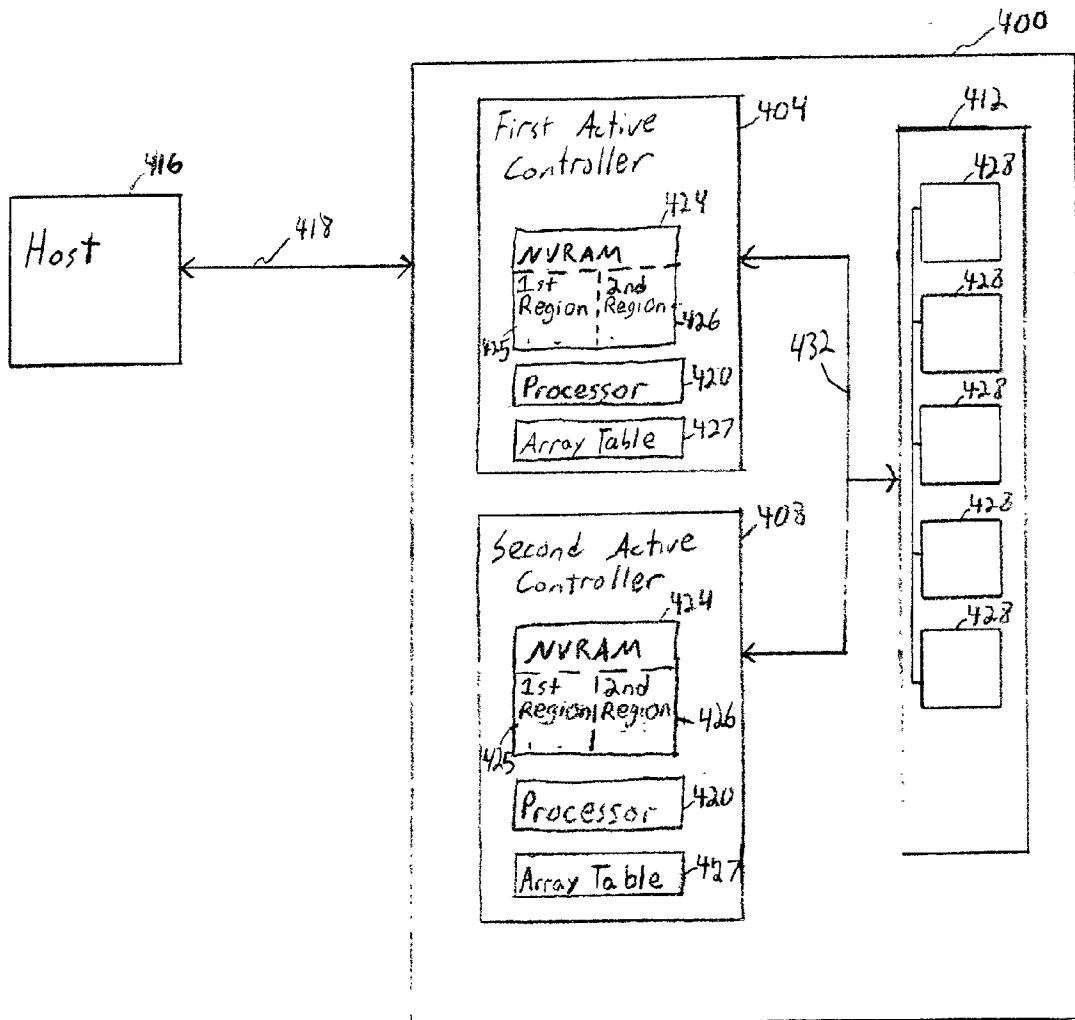 400
First Active
Controller
404
412
416
Host
418
424
NVRAM
1st
Region
2nd
Region
425
426
Processor
420
Array Table
427
432
428
428
428
428
428
Second Active
Controller
408
424
NVRAM
1st
Region
2nd
Region
425
426
Processor
420
Array Table
427